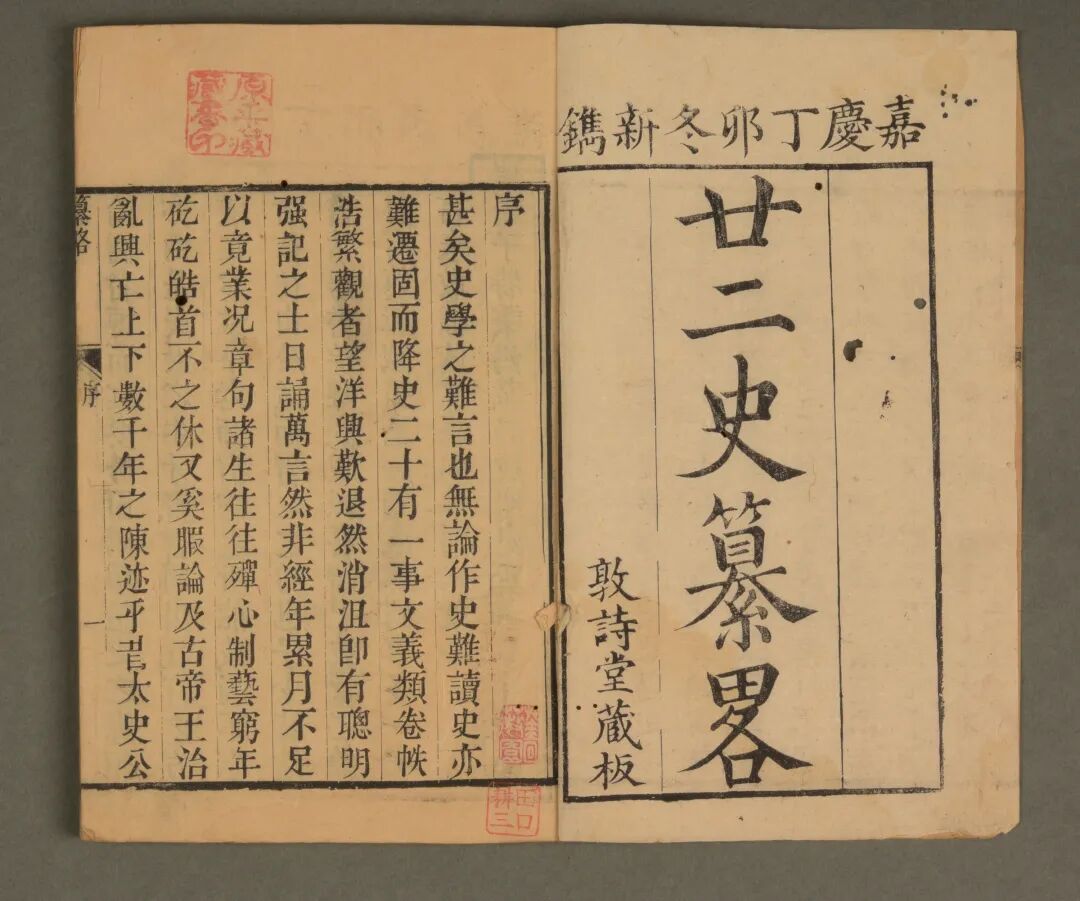 嘉慶丁卯冬新鐫
廿二史纂畧
敦詩堂蔵板
序
甚矣史學之難言也無論作史難讀史亦
難遷固而降史二十有一事文義類卷帙
浩繁觀者望洋興歎退然消沮卽有聰明
强記之士日誦萬言然非經年累月不足
以竟業况章句諸生往往殫心制藝窮年
矻矻皓首不之休又奚暇論及古帝王治
亂興亡上下數千年之陳迹乎昔太史公
纂略
序
一
田口
耕三